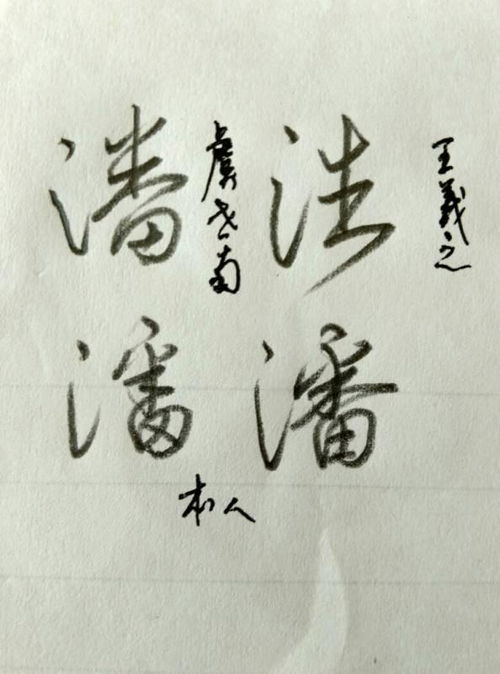 潘
虞世南
潘
王羲之
潘 潘
本人